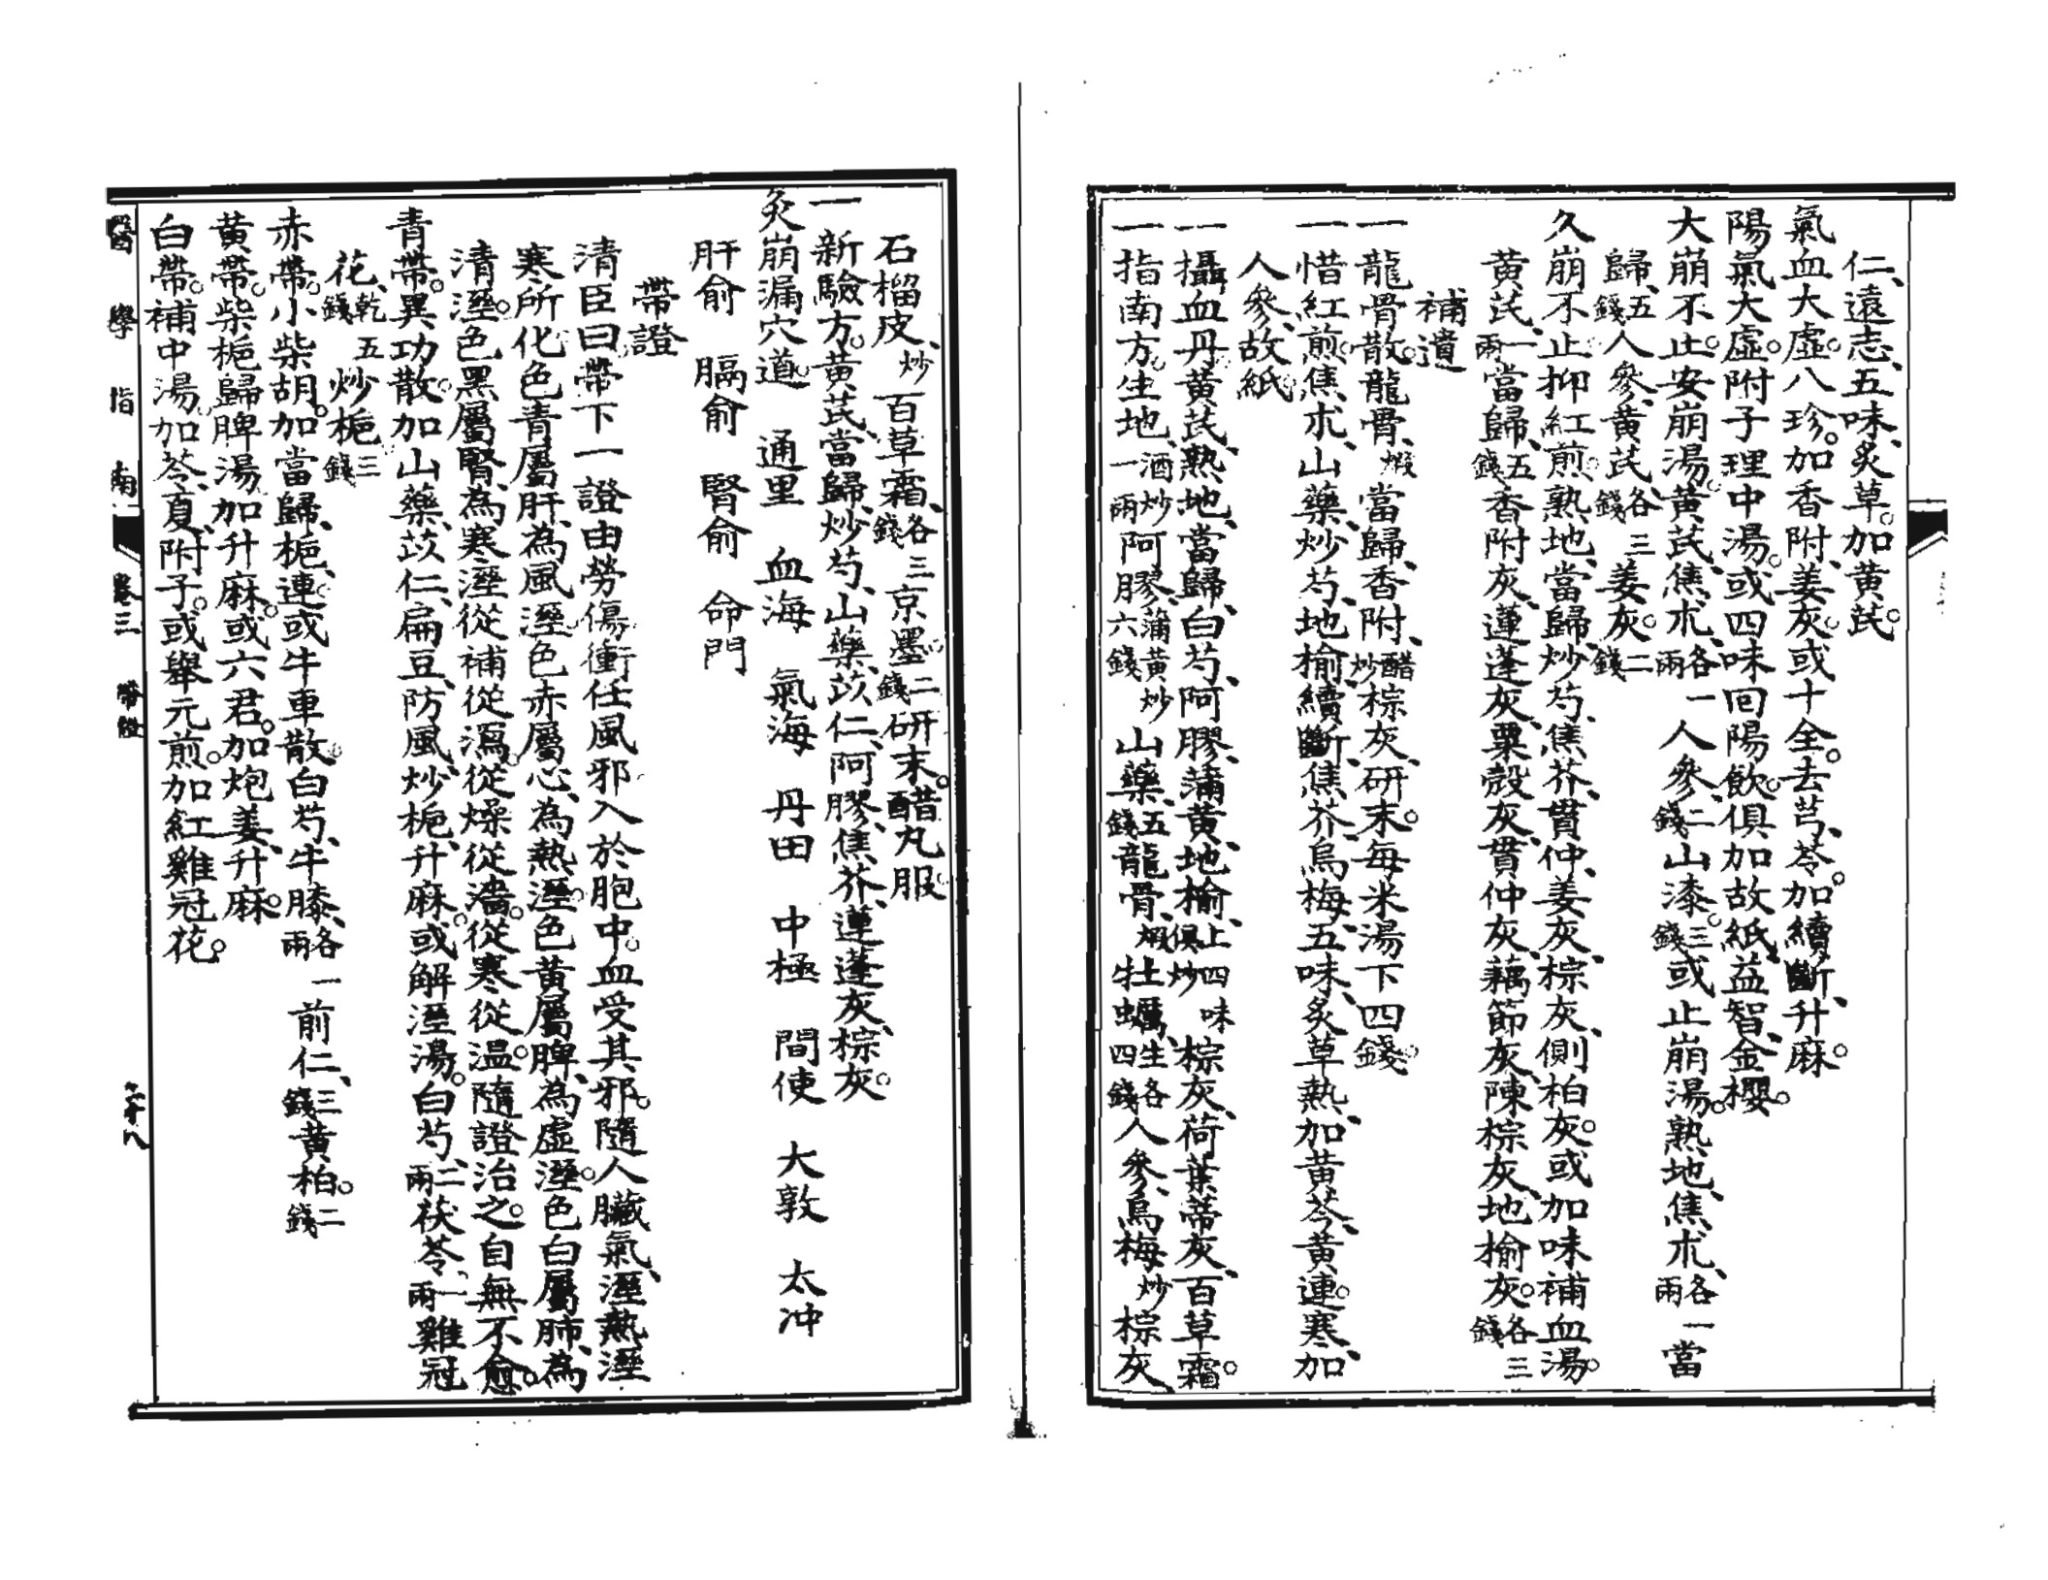 仁、遠志、五味、炙草。加黃芪。
氣血大虛。八珍。加香附、姜灰。或十全。去芎、苓。加續斷、升麻。
陽氣大虛。附子理中湯。或四味回陽飲。俱加故紙、益智、金櫻。
大崩不止。安崩湯。黃芪、焦朮、各一兩人參、二錢山漆。三錢或止崩湯。熟地、焦朮、各一兩當
歸、五錢人參、黃芪、各三錢姜灰。二錢
久崩不止。抑紅煎。熟地、當歸、炒芍、焦芥、貫仲、姜灰、棕灰、側柏灰。或加味補血湯。
黃芪、一兩當歸、五錢香附灰、蓮蓬灰、粟殼灰、貫仲灰、藕節灰、陳棕灰、地榆灰。各三錢
補遺
一龍骨散。龍骨、煅當歸、香附、醋炒棕灰、研末。每米湯下四錢。
一惜紅煎。焦朮、山藥、炒芍、地榆、續斷、焦芥、烏梅、五味、炙草。熱、加黃芩、黃連。寒、加
人參、故紙。
一攝血丹。黃芪、熟地、當歸、白芍、阿膠、蒲黃、地榆、上四味俱炒棕灰、荷葉蒂灰、百草霜。
一指南方。生地、酒炒一兩阿膠、蒲黃炒六錢山藥、五錢龍骨、煅牡蠣、生各四錢人參、烏梅、炒棕灰、
石榴皮、炒百草霜、各三錢京墨。二錢研末。醋丸服。
一新驗方。黃芪、當歸、炒芍、山藥、苡仁、阿膠、焦芥、蓮蓬灰、棕灰。
灸崩漏穴道 通里 血海 氣海 丹田 中極 間使 大敦 太冲
肝俞 膈俞 腎俞 命門
帶證
清臣曰。帶下一證。由勞傷衝任。風邪入於胞中。血受其邪。隨人臟氣、溼熱、溼
寒所化。色青屬肝、為風溼。色赤屬心、為熱溼。色黃屬脾、為虛溼。色白屬肺、為
清溼。色黑屬腎、為寒溼。從補從瀉。從燥從濇。從寒從溫。隨證治之。自無不愈。
青帶。異功散。加山藥、苡仁、扁豆、防風、炒梔、升麻。或解溼湯。白芍、二兩茯苓、一兩雞冠
花、乾五錢炒梔三錢
赤帶。小柴胡。加當歸、梔、連。或牛車散。白芍、牛膝、各一兩前仁、三錢黃柏。二錢
黃帶。柴梔歸脾湯加升麻。或六君。加炮姜、升麻。
白帶。補中湯。加苓、夏、附子。或舉元煎。加紅雞冠花。
醫學指南 卷三 帶證 六十八